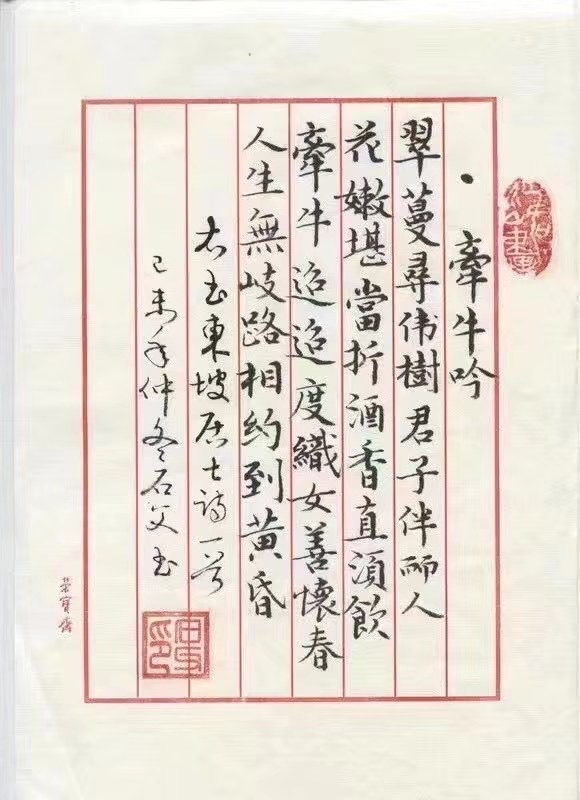 · 牽牛吟
翠蔓尋伟樹君子伴丽人
花嫩堪當折酒香直須飲
牽牛迢迢度織女善懷春
人生無岐路相约到黄昏
右书東坡居士詩一首
己未年仲冬石父书
荣寳齋